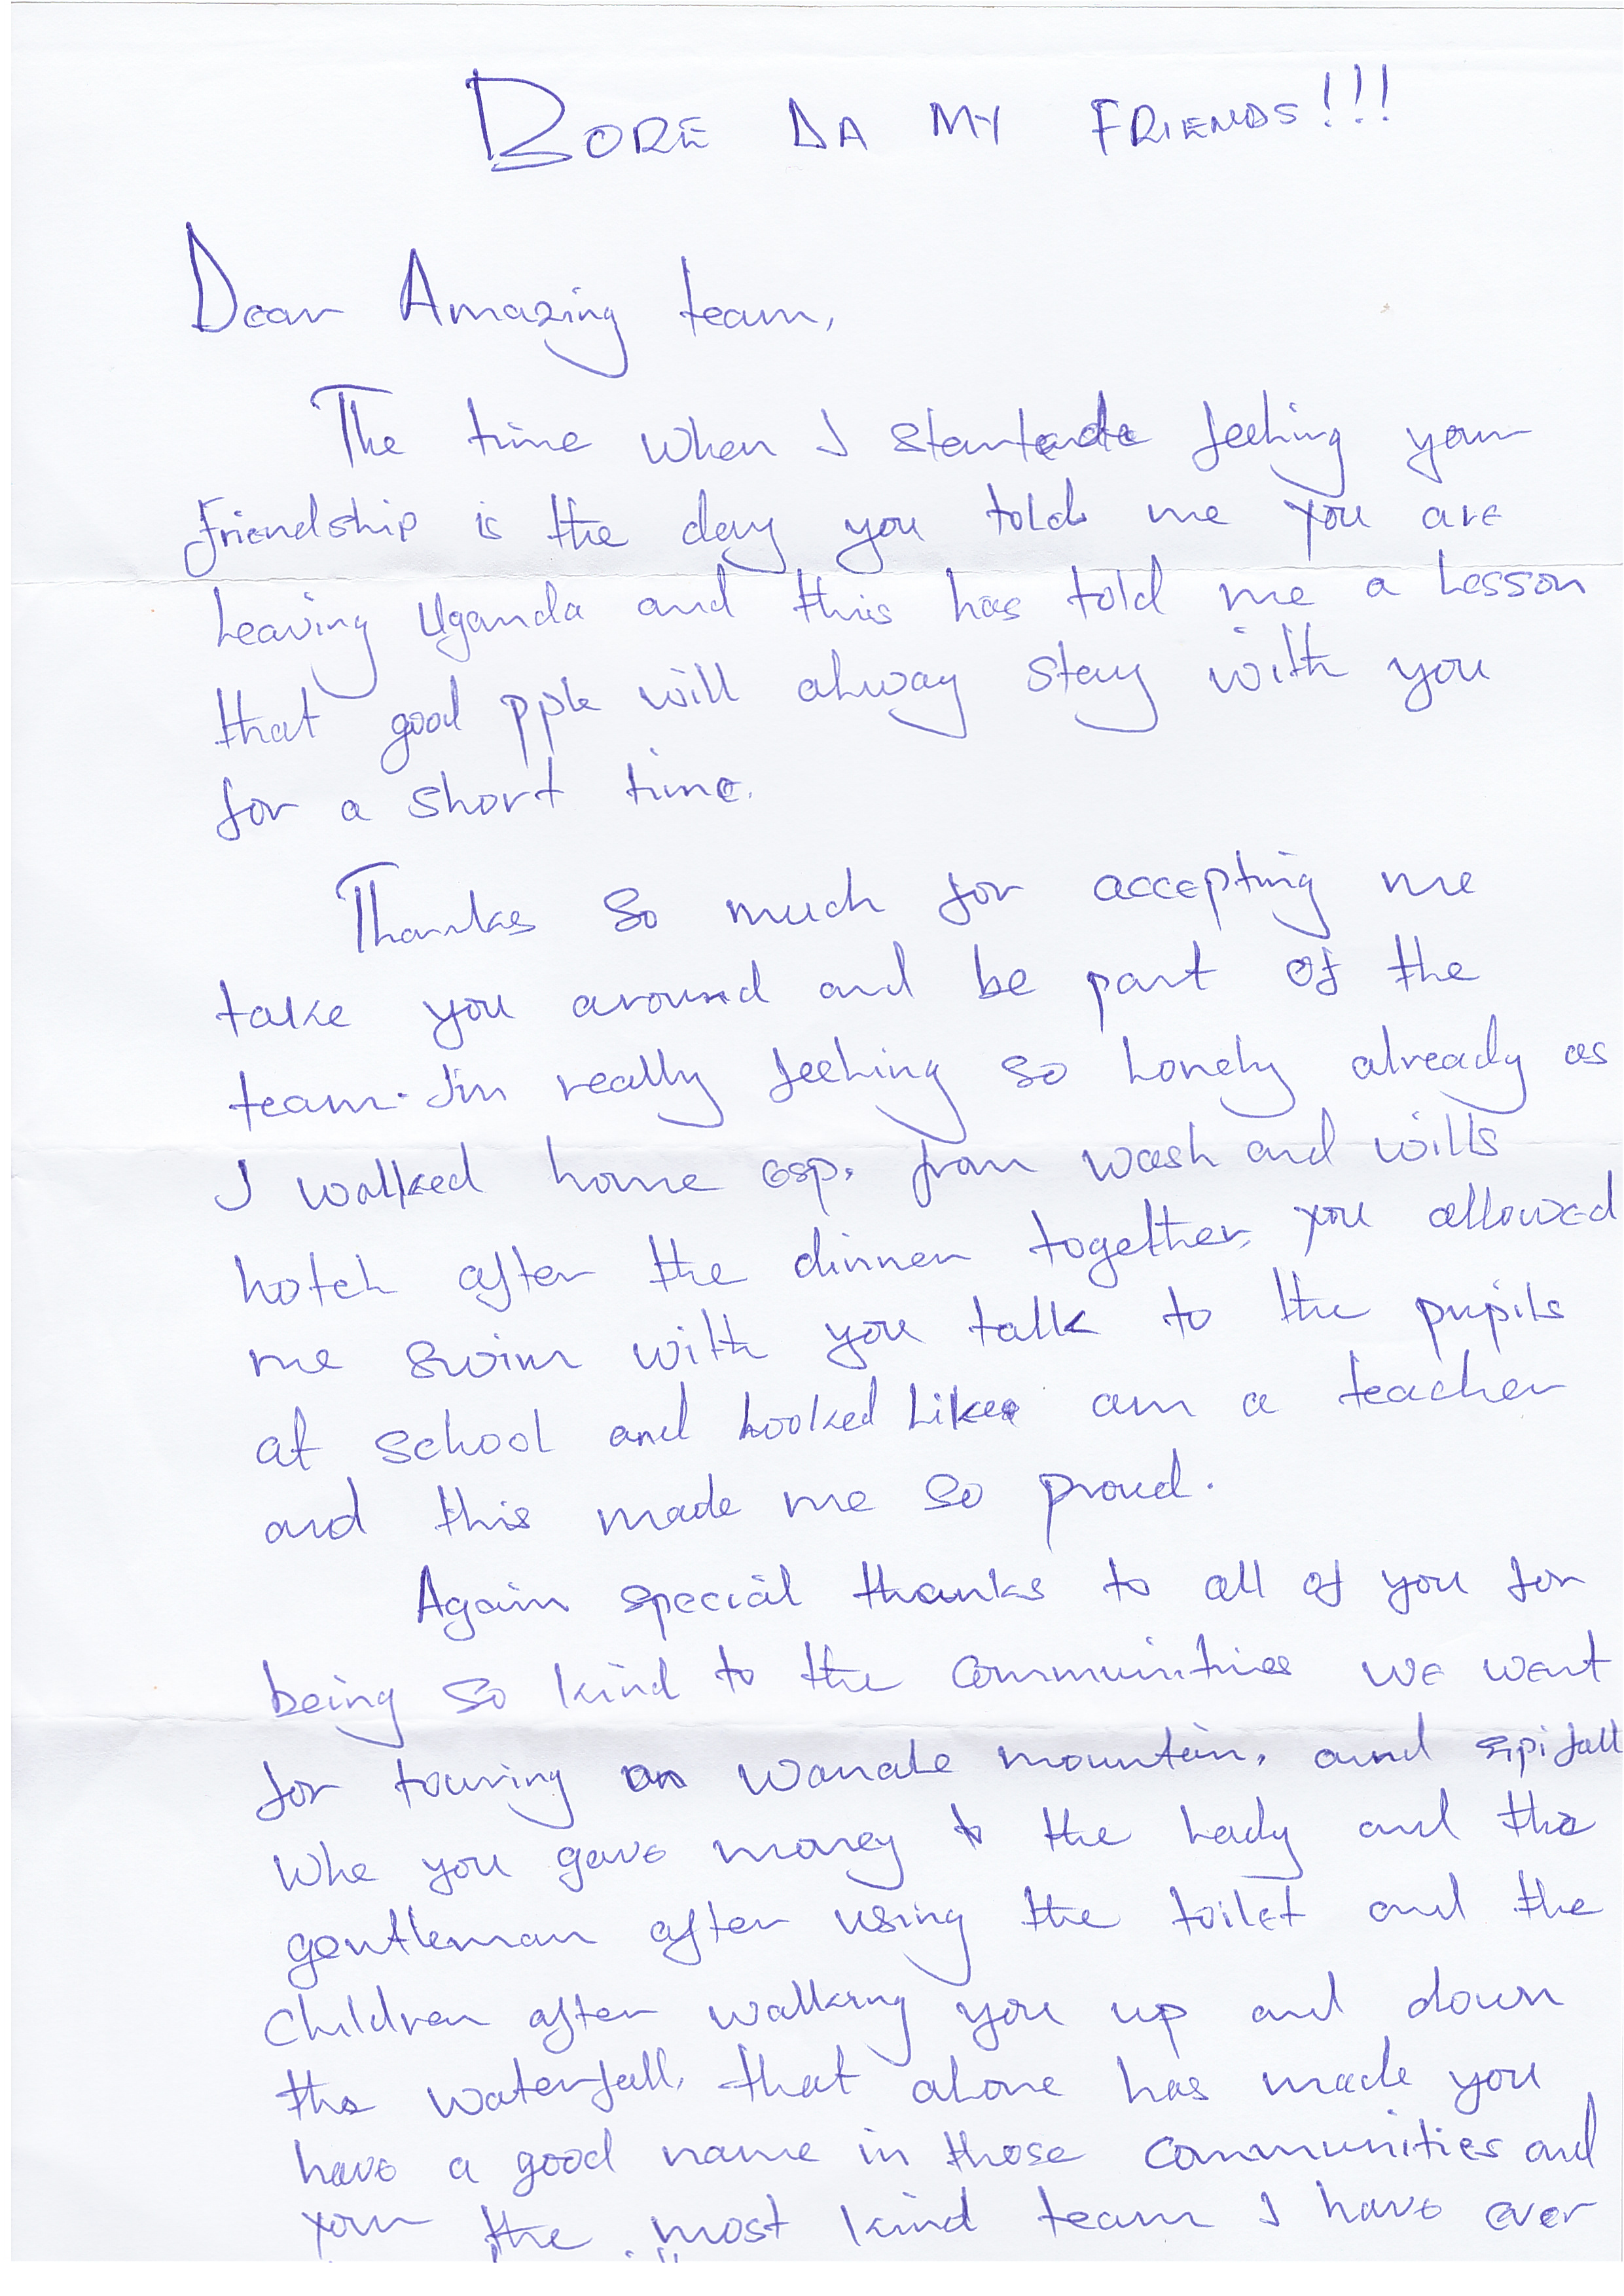 BORE DA MY FRIENDS!!!
Dear Amazing team,
The time when I started feeling your
friendship is the day you told me you are
Leaving Uganda and this has told me a Lesson
that good pple will alway stay with you
for a short time.
Thanks so much for accepting me
take you around and be part of the
team. I'm really feeling so Lonely already as
I walked home esp. from wash and wills
hotel after the dinner together, you allowed
me swim with you talk to the pupils
at school and Looked Like am a teacher
and this made me so proud.
Again special thanks to all of you for
being so kind to the communities we went
for touring on Wanale mountain, and sipi fall
whe you gave money to the Lady and the
gentleman after using the toilet and the
Children after walking you up and down
the waterfall, that alone has made you
have a good name in those communities and
your the most kind team I have ever